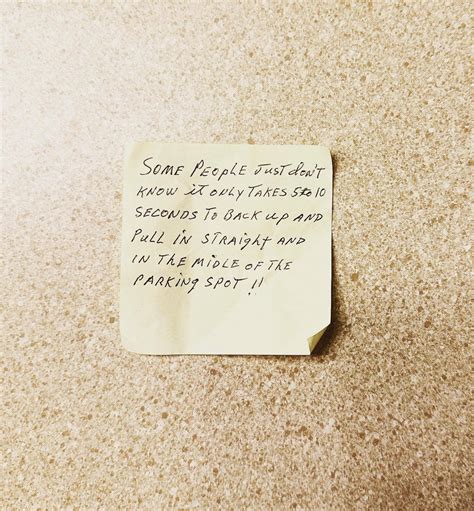 SOME PEOPLE JUST DON'T
KNOW it ONLY TAKES 5 to 10
SECONDS TO BACK UP AND
PULL IN STRAIGHT AND
IN THE MIDLE OF THE
PARKING SPOT !!